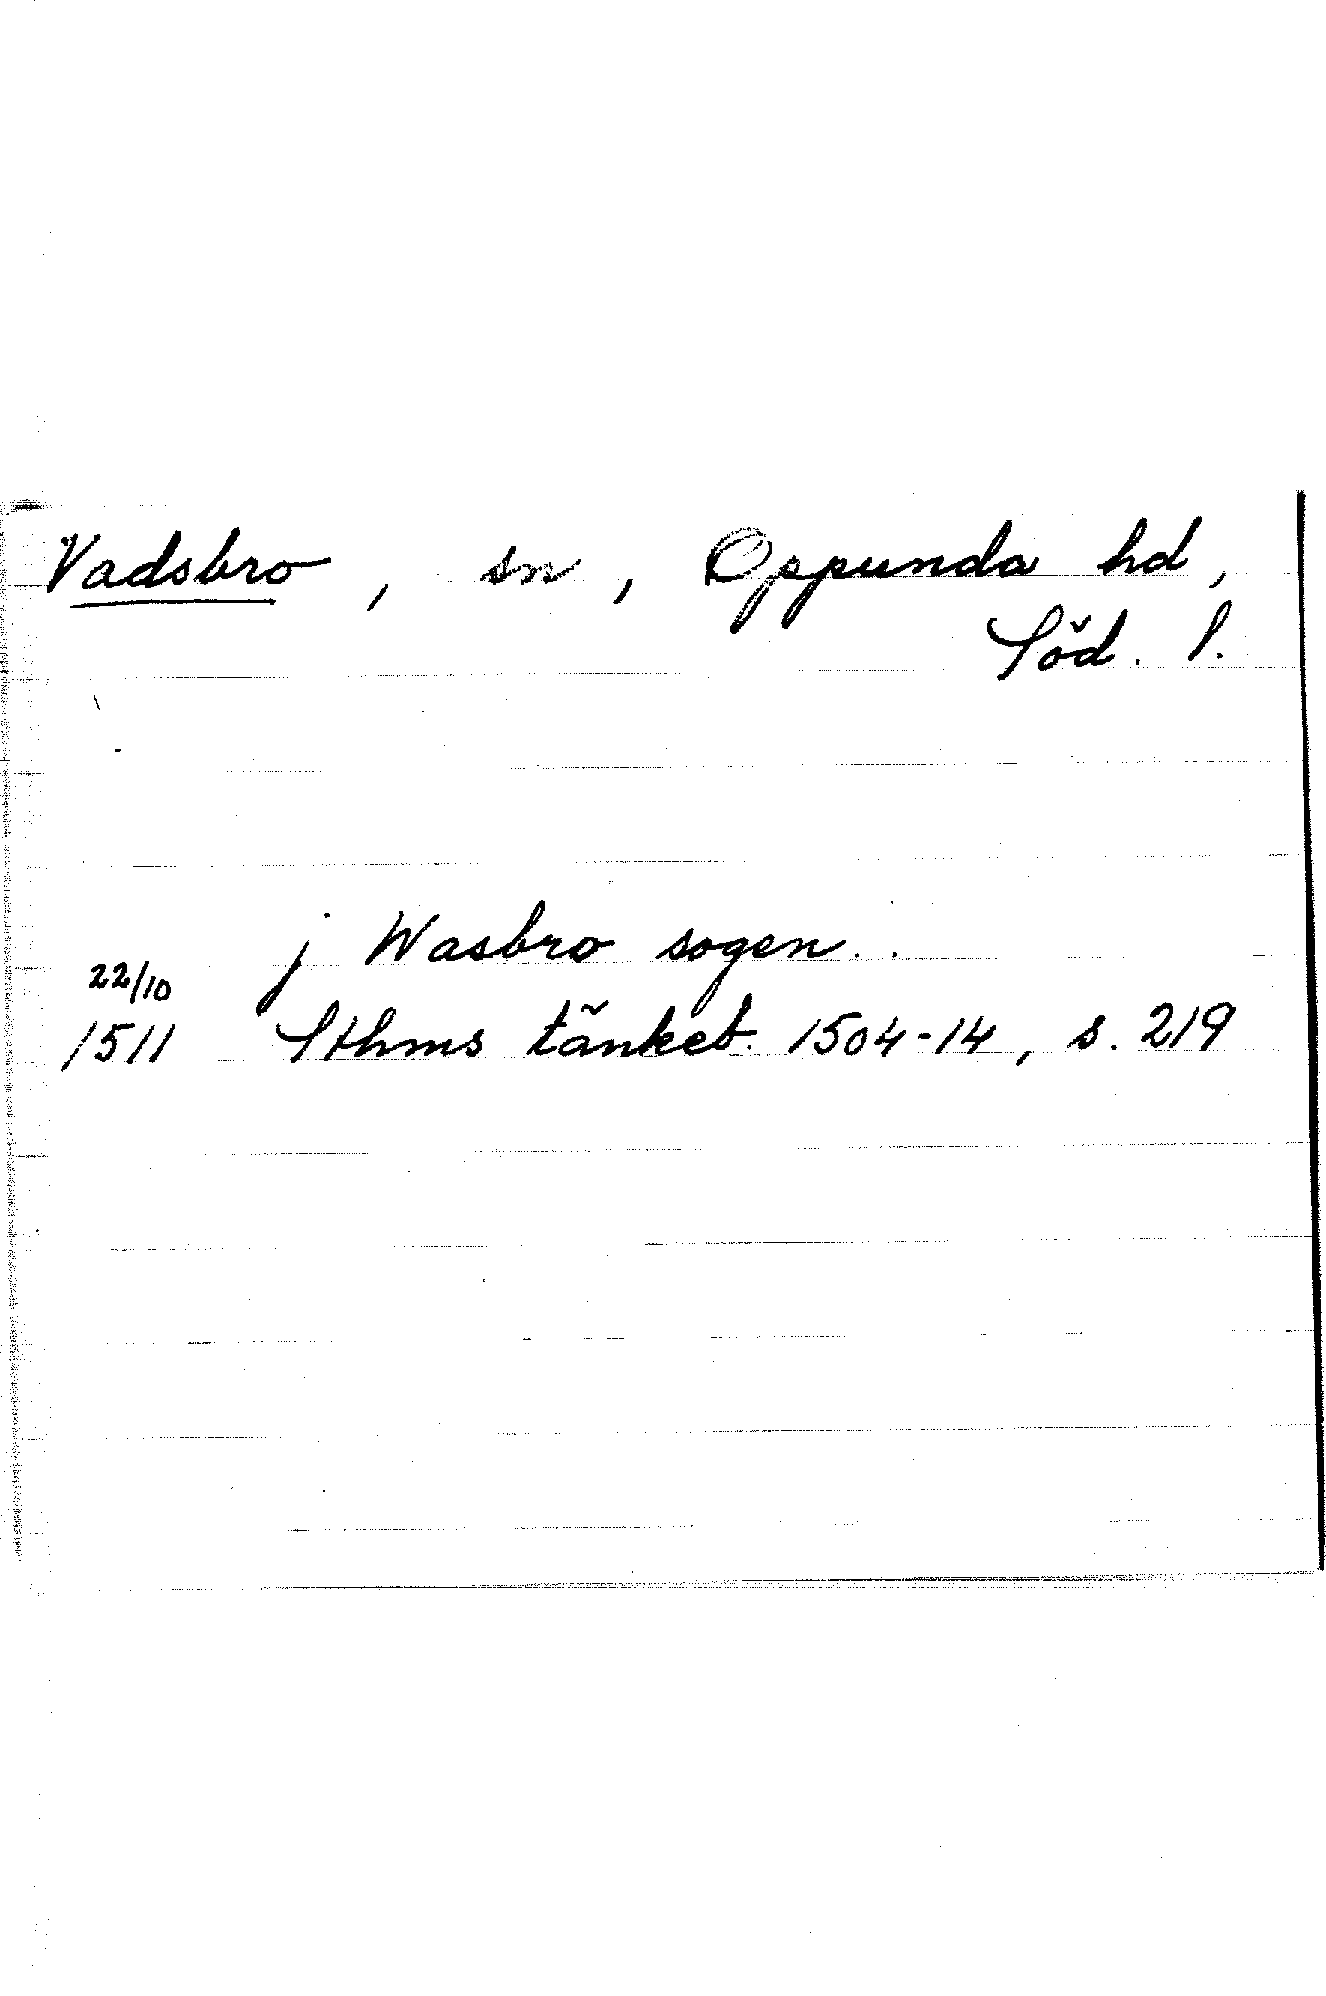 Vadsbro, sn, Oppunda hd,
Söd. l.
j Wasbro sogen..
22/10
1511 Sthms tänkeb. 1504-14, s. 219